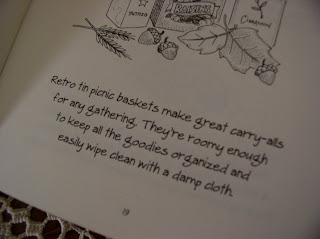 RAISINS
Cinnamon
NUTMEG
Retro tin picnic baskets make great carry-alls
for any gathering. They're roomy enough
to keep all the goodies organized and
easily wipe clean with a damp cloth.
19